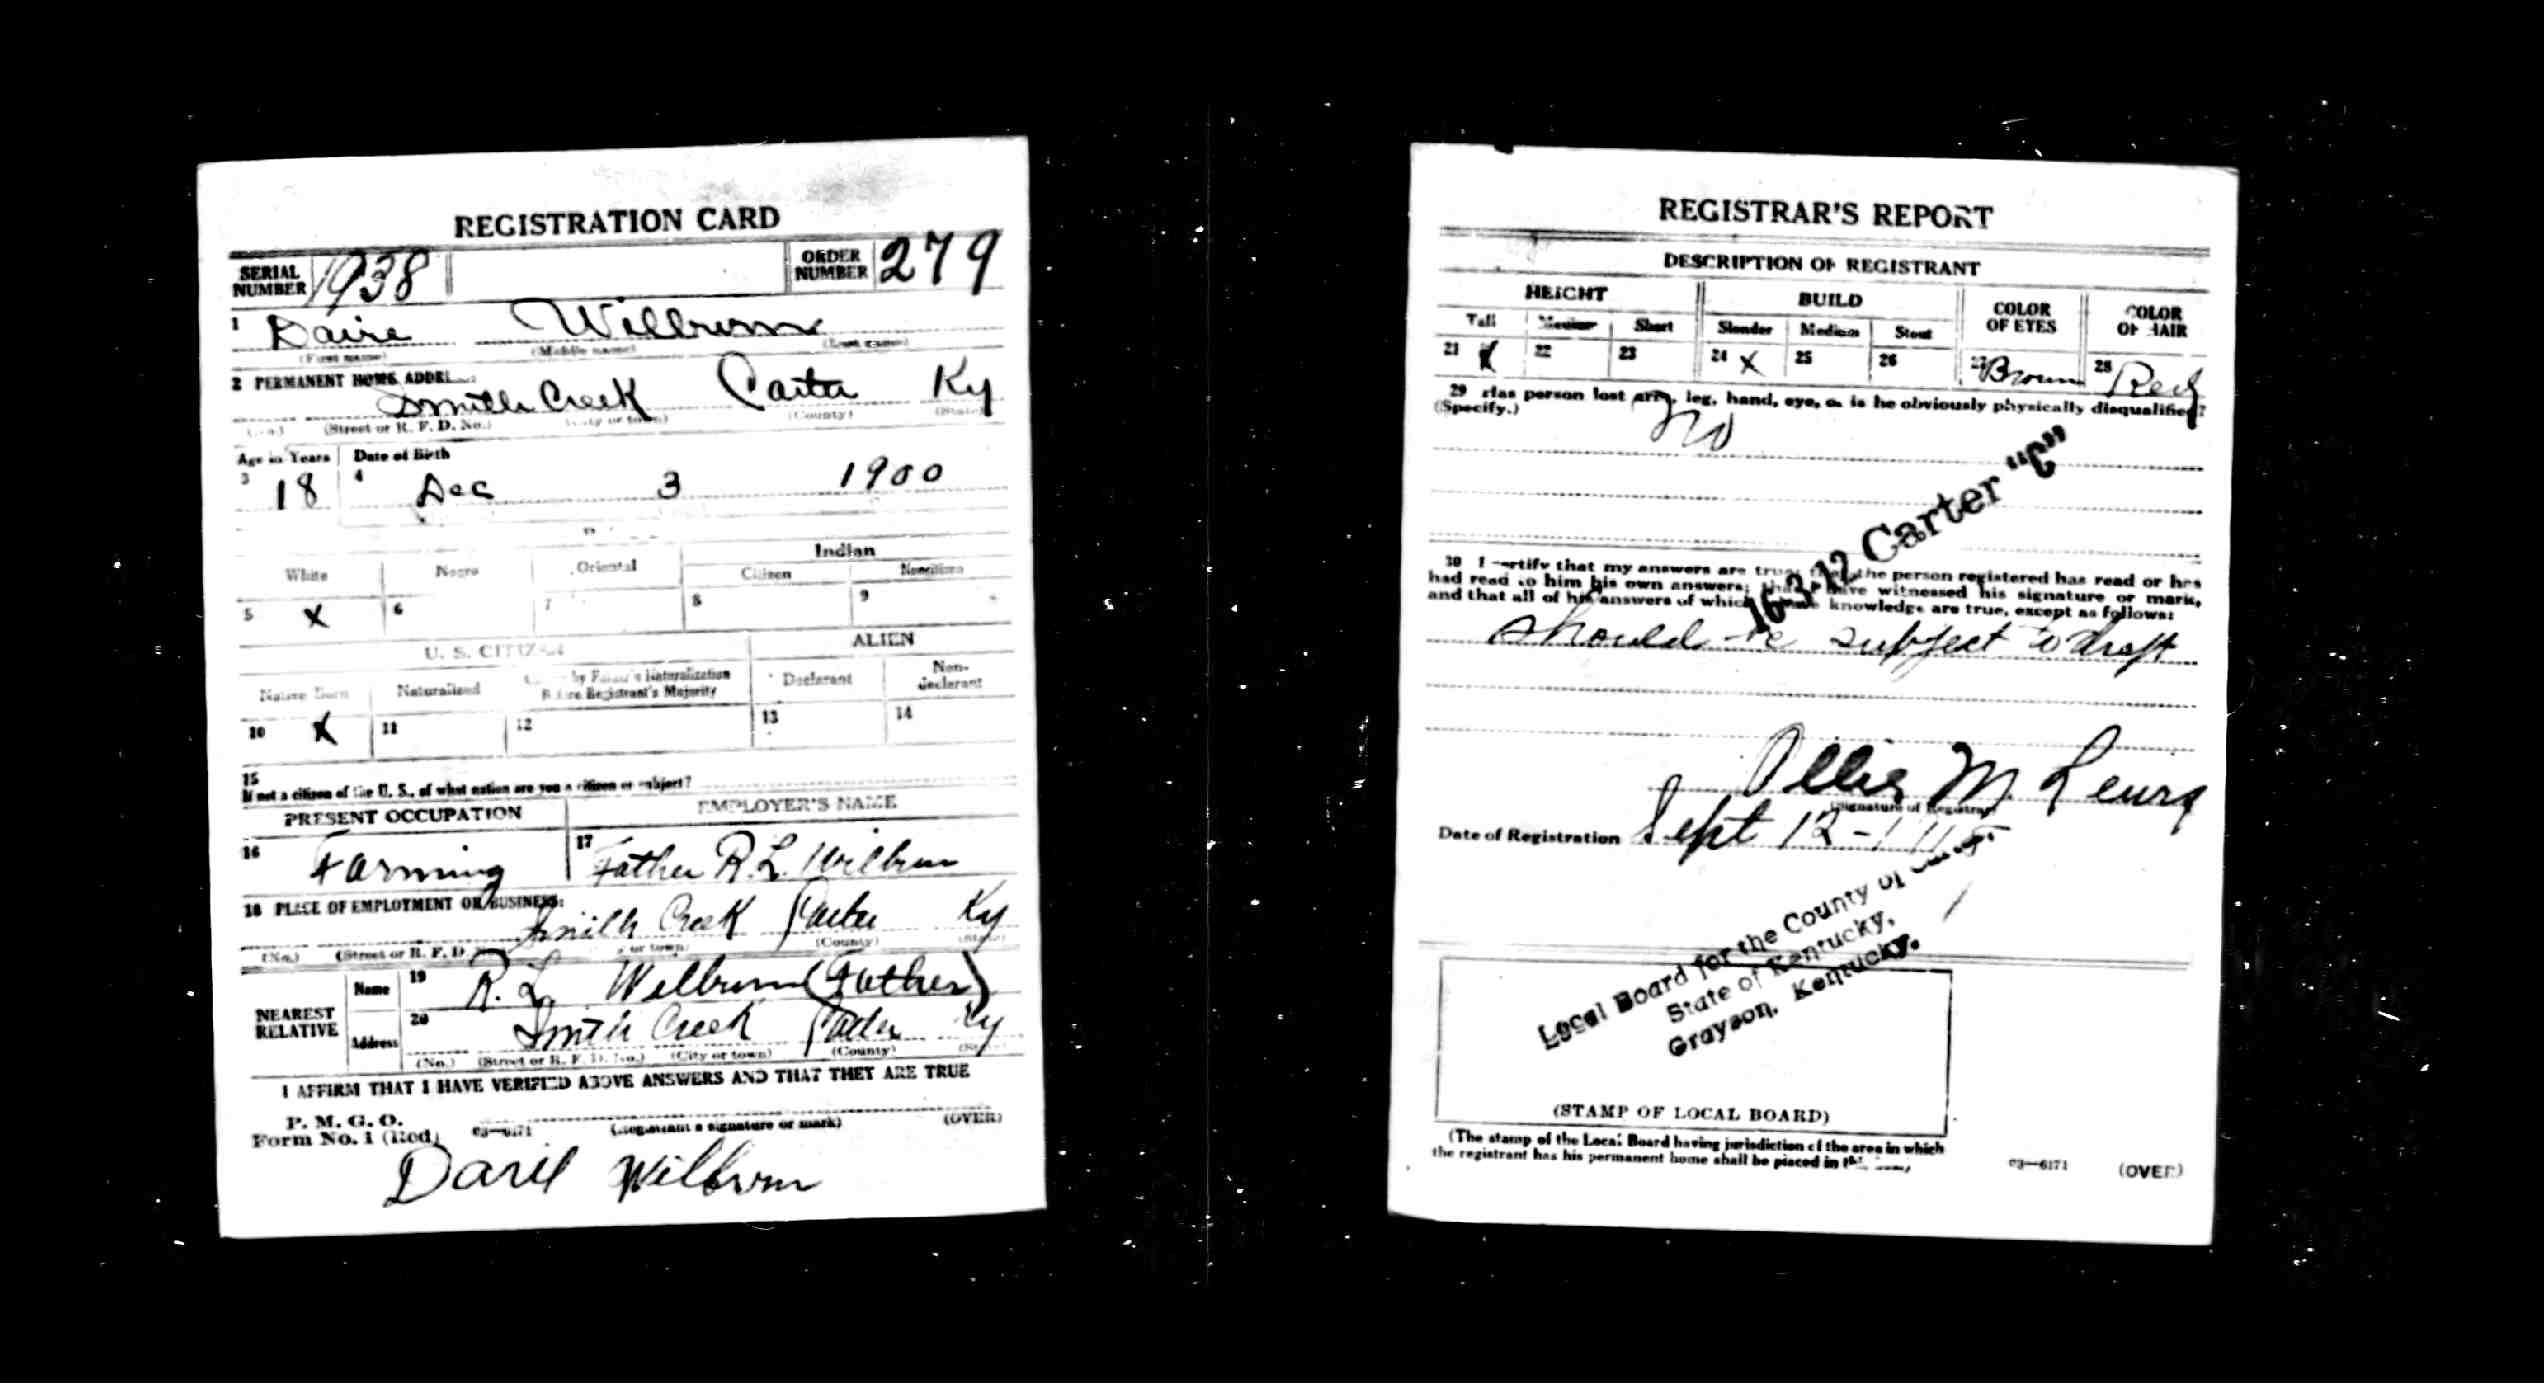 REGISTRATION CARD
SERIAL NUMBER 1938 ORDER NUMBER 279
1 Wilburn
(First name) (Middle name) (Last name)
2 PERMANENT HOME
Smith Creek Carter Ky
(Street or R. F. D. No.) (County) (State)
Age in Years Date of Birth
3 18 4 Dec 3 1900
Indian
White Negro Oriental Citizen Noncitizen
5 X 6 7 8 9
U. S. CITIZEN ALIEN
Native Born Naturalized by Father's Naturalization Before Registrant's Majority Declarant Non-declarant
10 X 11 12 13 14
15
If not a citizen of the U. S., of what nation are you a citizen or subject?
PRESENT OCCUPATION EMPLOYER'S NAME
16 Farming 17 Father R. L. Wilburn
18 PLACE OF EMPLOYMENT OR BUSINESS:
Smith Creek Carter Ky
(No.) (Street or R. F. D. or town) (County) (State)
NEAREST RELATIVE Name 19 R. L. Wilburn (Father)
Address 20 Smith Creek Carter Ky
(No.) (Street or R. F. D. No.) (City or town) (County)
I AFFIRM THAT I HAVE VERIFIED ABOVE ANSWERS AND THAT THEY ARE TRUE
P. M. G. O.
Form No. 1 (Red) 03—6171 (Registrant's signature or mark) (OVER)
Wilburn
REGISTRAR'S REPORT
DESCRIPTION OF REGISTRANT
HEIGHT BUILD COLOR OF EYES COLOR OF HAIR
Tall Medium Short Slender Medium Stout
21 X 22 23 24 X 25 26 27 Brown 28 Red
29 Has person lost arm, leg, hand, eye, or is he obviously physically disqualified?
(Specify.)
No
16-3-12 Carter "C"
30 I certify that my answers are true; the person registered has read or has
had read to him his own answers; that have witnessed his signature or mark,
and that all of his answers of which knowledge are true, except as follows:
Should be subject to draft
Ollie M Lewis
(Signature of Registrar)
Date of Registration Sept 12
Local Board for the County of
State of Kentucky,
Grayson, Kentucky.
(STAMP OF LOCAL BOARD)
(The stamp of the Local Board having jurisdiction of the area in which
the registrant has his permanent home shall be placed in
03—6171 (OVER)